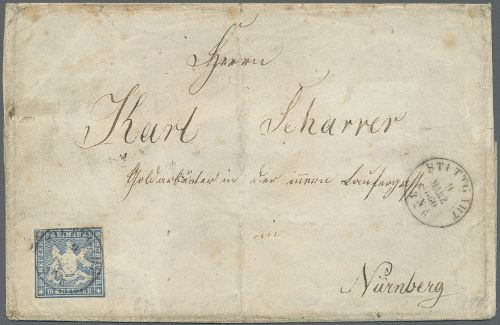 Herrn
Karl Scharrer
Goldarbeiter in der innern Laufergasse
in
Nürnberg
STUTTGART
9
MÄRZ